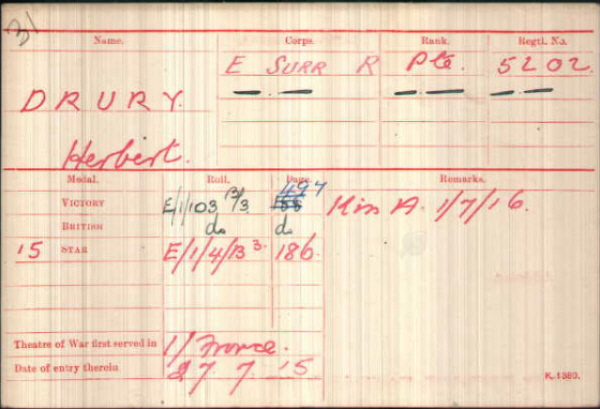 31
Name. Corps. Rank. Regtl. No.
E SURR R Pte. 5202.
DRURY.
Herbert.
Medal. Roll. Page. Remarks.
VICTORY E/1/103 B/3 497 Kin A. 1/7/16.
BRITISH do do
15 STAR E/1/4/B 3. 186.
Theatre of War first served in 1/ France.
Date of entry therein 27 7. 15
K. 1380.